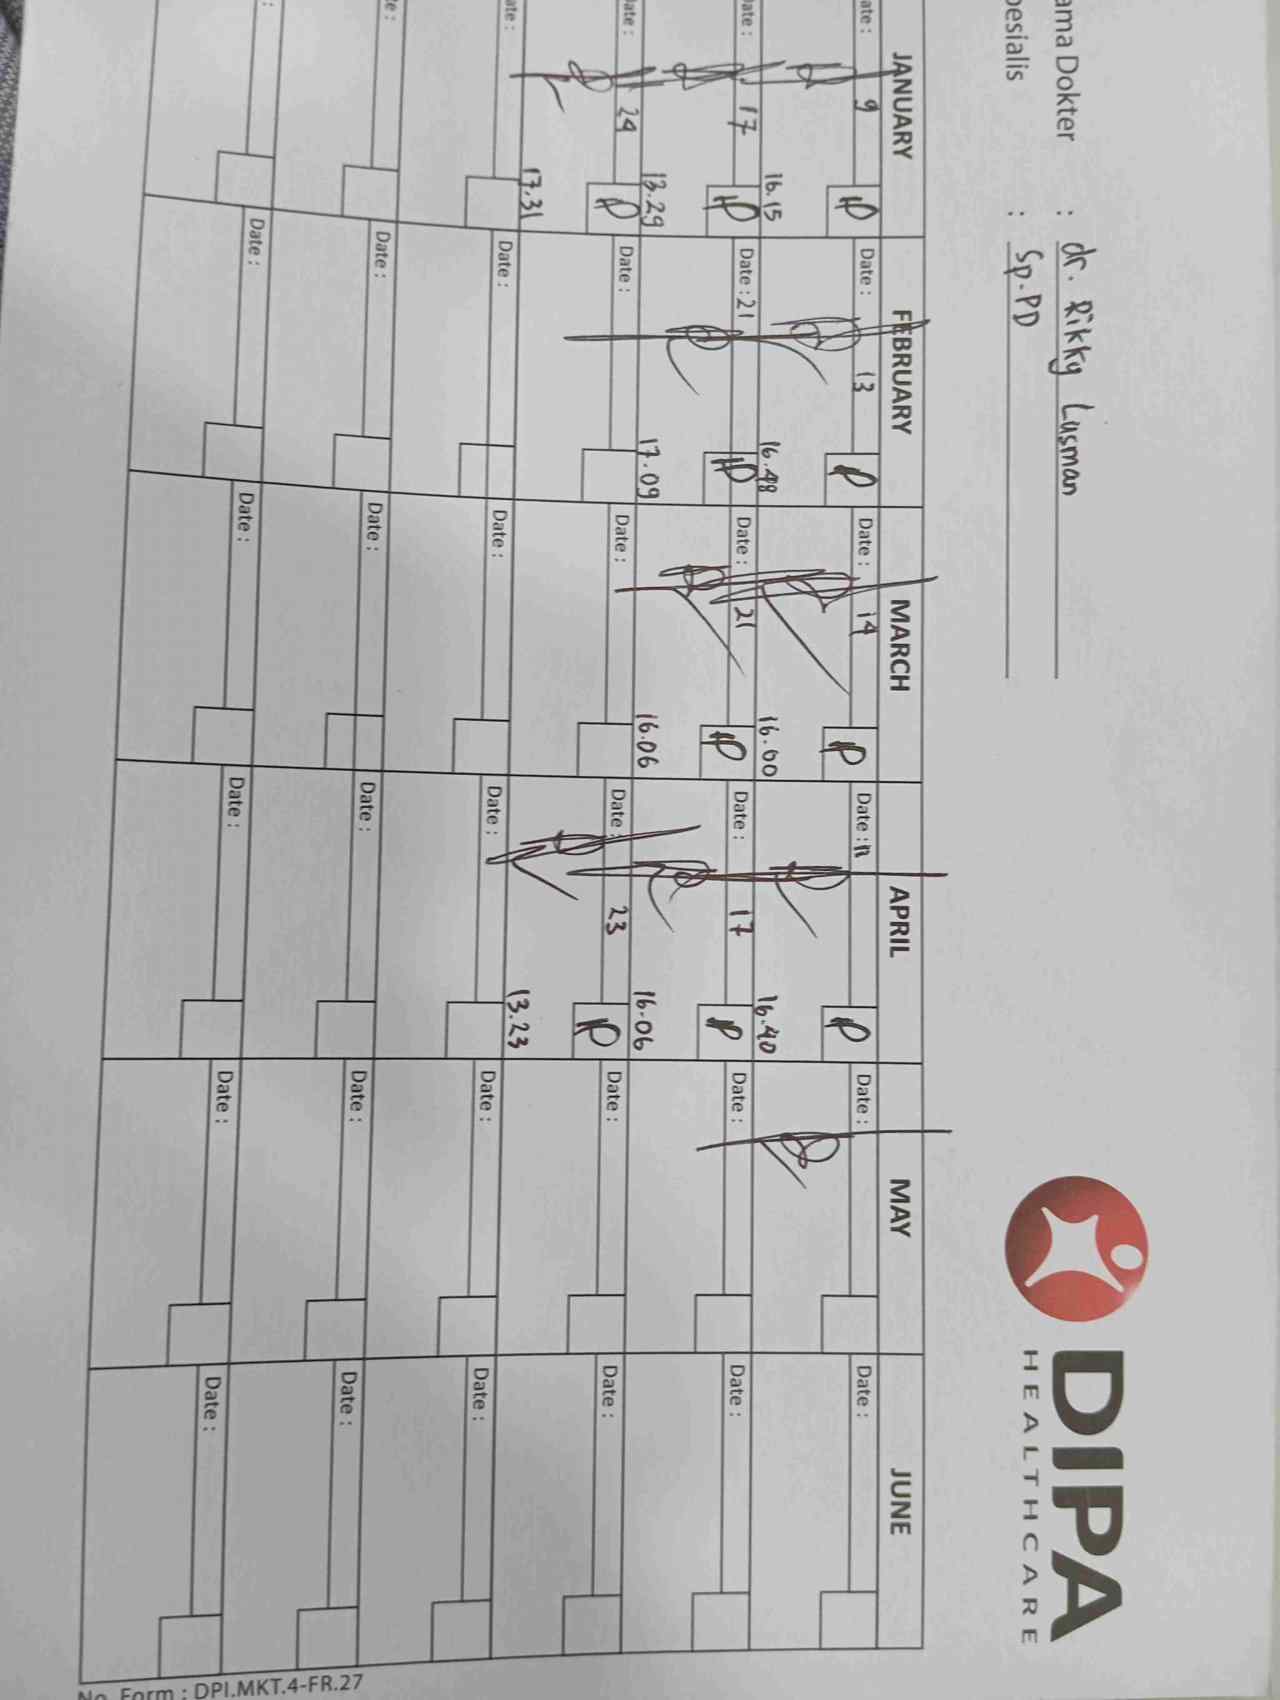 DIPA
HEALTHCARE
ama Dokter : dr. Rikky Lusman
pesialis : Sp.PD
JANUARY FEBRUARY MARCH APRIL MAY JUNE
ate : 9 Date : 13 Date : 14 Date : 11 Date : Date :
16.15 16.48 16.00 16.40
Date : 17 Date : 21 Date : 21 Date : 17 Date : Date :
13.29 17.09 16.06 16.06
Date : 24 Date : Date : Date : 23 Date : Date :
17.31 13.23
ate : Date : Date : Date : Date : Date :
te : Date : Date : Date : Date : Date :
: Date : Date : Date : Date : Date :
No. Form : DPI.MKT.4-FR.27